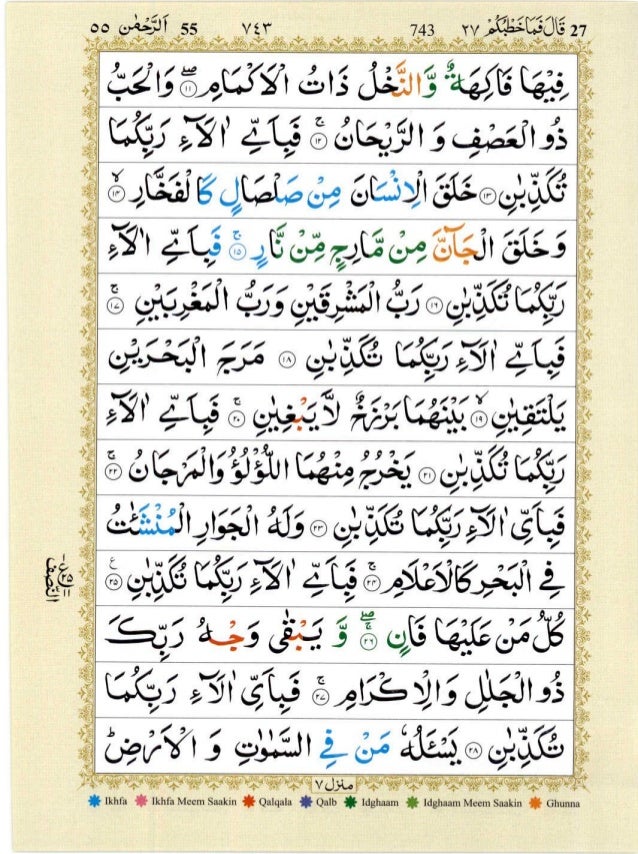 ٥٥ اَلرَّحْمٰن 55 ٧٤٣ 743 ٢٧ قَالَ فَمَا خَطْبُكُمْ 27
فِيْهَا فَاكِهَةٌ وَّالنَّخْلُ ذَاتُ الْاَكْمَامِ ۝١١ وَالْحَبُّ
ذُو الْعَصْفِ وَ الرَّيْحَانُ ۝١٢ فَبِاَيِّ اٰلَآءِ رَبِّكُمَا
تُكَذِّبٰنِ ۝١٣ خَلَقَ الْاِنْسَانَ مِنْ صَلْصَالٍ كَالْفَخَّارِ ۝١٤
وَ خَلَقَ الْجَآنَّ مِنْ مَّارِجٍ مِّنْ نَّارٍ ۝١٥ فَبِاَيِّ اٰلَآءِ
رَبِّكُمَا تُكَذِّبٰنِ ۝١٦ رَبُّ الْمَشْرِقَيْنِ وَرَبُّ الْمَغْرِبَيْنِ ۝١٧
فَبِاَيِّ اٰلَآءِ رَبِّكُمَا تُكَذِّبٰنِ ۝١٨ مَرَجَ الْبَحْرَيْنِ
يَلْتَقِيٰنِ ۝١٩ بَيْنَهُمَا بَرْزَخٌ لَّا يَبْغِيٰنِ ۝٢٠ فَبِاَيِّ اٰلَآءِ
رَبِّكُمَا تُكَذِّبٰنِ ۝٢١ يَخْرُجُ مِنْهُمَا اللُّؤْلُؤُ وَالْمَرْجَانُ ۝٢٢
فَبِاَيِّ اٰلَآءِ رَبِّكُمَا تُكَذِّبٰنِ ۝٢٣ وَلَهُ الْجَوَارِ الْمُنْشَئٰتُ
فِي الْبَحْرِ كَالْاَعْلَامِ ۝٢٤ فَبِاَيِّ اٰلَآءِ رَبِّكُمَا تُكَذِّبٰنِ ۝٢٥
كُلُّ مَنْ عَلَيْهَا فَانٍ ۝٢٦ وَّ يَبْقٰى وَجْهُ رَبِّكَ
ذُو الْجَلٰلِ وَالْاِكْرَامِ ۝٢٧ فَبِاَيِّ اٰلَآءِ رَبِّكُمَا
تُكَذِّبٰنِ ۝٢٨ يَسْئَلُهٗ مَنْ فِي السَّمٰوٰتِ وَ الْاَرْضِ
منزل ٧
النصف
Ikhfa Ikhfa Meem Saakin Qalqala Qalb Idghaam Idghaam Meem Saakin Ghunna